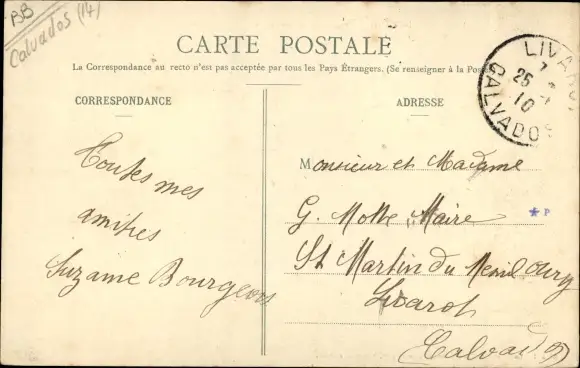 BB
Calvados (14)
CARTE POSTALE
La Correspondance au recto n'est pas acceptée par tous les Pays Étrangers. (Se renseigner à la Poste
CORRESPONDANCE
ADRESSE
LIVAROT
25
10
CALVADOS
Toutes mes
amitiés
Suzanne Bourgeois
Monsieur et Madame
G. Motte, Maire
* P
St Martin du Mesnil Oury
Livarot
Calvados